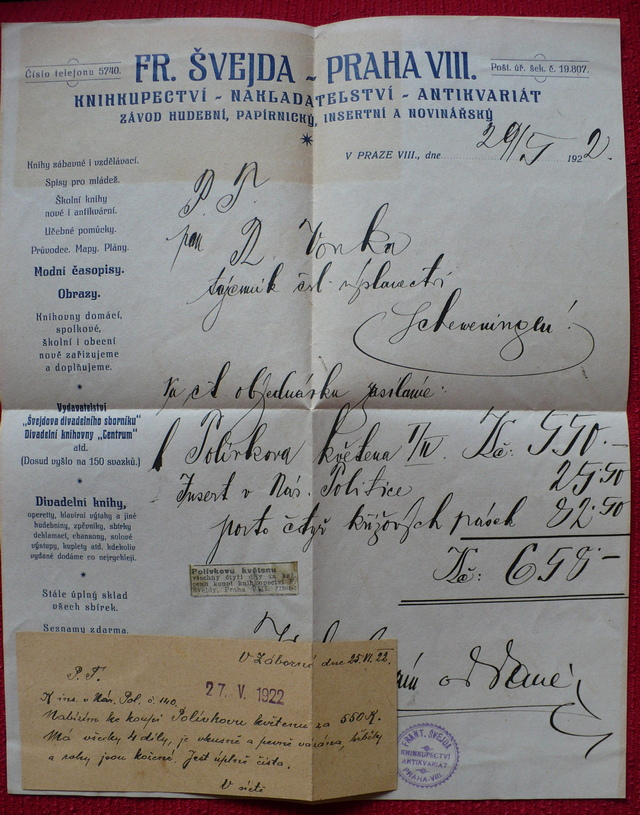 Číslo telefonu 5740.
FR. ŠVEJDA - PRAHA VIII.
Pošt. úř. šek. č. 19.807.
KNIHKUPECTVÍ - NAKLADATELSTVÍ - ANTIKVARIÁT
ZÁVOD HUDEBNÍ, PAPÍRNICKÝ, INSERTNÍ A NOVINÁŘSKÝ
V PRAZE VIII., dne 29/V 1922.
Knihy zábavné i vzdělávací.
Spisy pro mládež.
Školní knihy
nové i antikvární.
Učebné pomůcky.
Průvodce. Mapy. Plány.
Modní časopisy.
Obrazy.
Knihovny domácí,
spolkové,
školní i obecní
nově zařizujeme
a doplňujeme.
Vydavatelství
„Švejdova divadelního sborníku"
Divadelní knihovny „Centrum"
atd.
(Dosud vyšlo na 150 svazků.)
Divadelní knihy,
operetty, klavírní výtahy a jiné
hudebniny, zpěvníky, sbírky
deklamací, chansony, solové
výstupy, kuplety atd. kdekoliv
vydané dodáme co nejrychleji.
Stále úplný sklad
všech sbírek.
Seznamy zdarma.
P. T.
pan R. Vonka
tajemník čsl. vyslanectví
Scheveningen!
Na ct. objednávku zasíláme:
1 Polívkova květena I/IV Kč: 550.-
Insert v Nár. Politice 25.50
porto čtyř křížových pásek 82.50
Kč: 658.-
Polívkovu květenu
všechny čtyři díly za
knihkupectví
Švejdy, Praha VIII.
oddaný
V Záborné dne 25. VI. 22.
P. T.
27. V. 1922
K ins. v Nár. Pol. č. 140.
Nabízím ke koupi Polívkovu květenu za 550 K.
Má všecky 4 díly, je vkusně a pevně vázána, hřbety
a rohy jsou kožené. Jest úplně čistá.
V úctě
FRANT. ŠVEJDA
KNIHKUPECTVÍ
ANTIKVARIÁT
PRAHA-VIII.